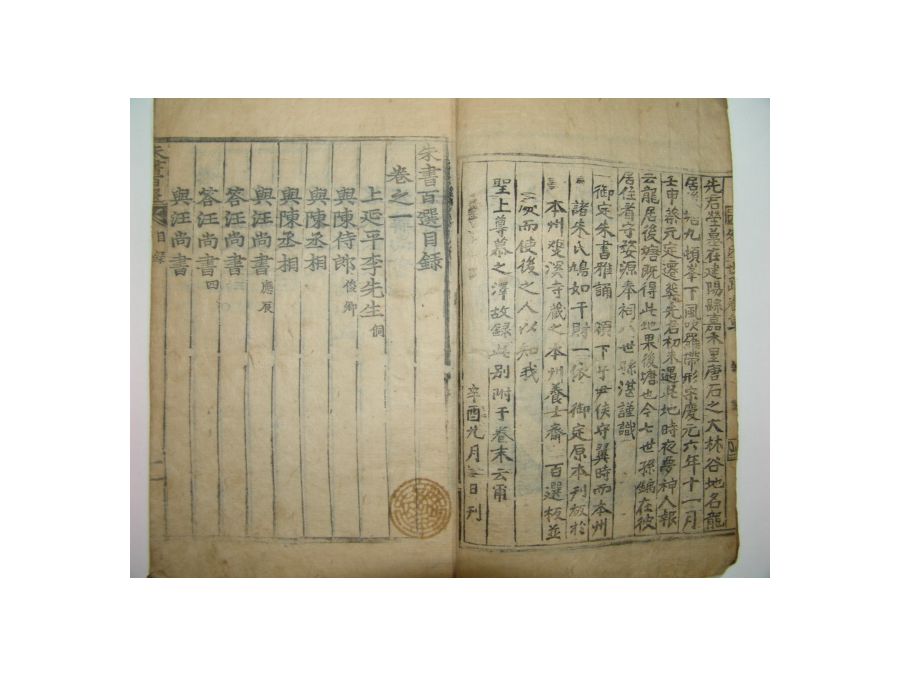 先君塋墓在建陽縣嘉禾里唐石之大林谷地名龍
居後九頓峯下風吹羅帶形宋慶元六年十一月
壬申蔡元定遷葬先君初來遇此地時夜夢神人報
云龍居後塘旣得此地果後塘也今七世孫鎬在彼
居住看守婺源奉祠八世孫湛謹識
御定朱書雅誦 頒下于尹侯守翼時而本州
諸朱氏鳩如干財一依 御定原本刊板於
本州 溪寺藏之本州養士齋 百選板並
而使後之人以知我
聖上尊慕之澤故錄此別附于卷末云甭
辛酉 月 日刊
朱書百選目錄
卷之一
上延平李先生 侗
與陳侍郎 俊卿
與陳丞相
與陳丞相
與汪尚書 應辰
答汪尚書
答汪尚書 四
與汪尚書
目錄